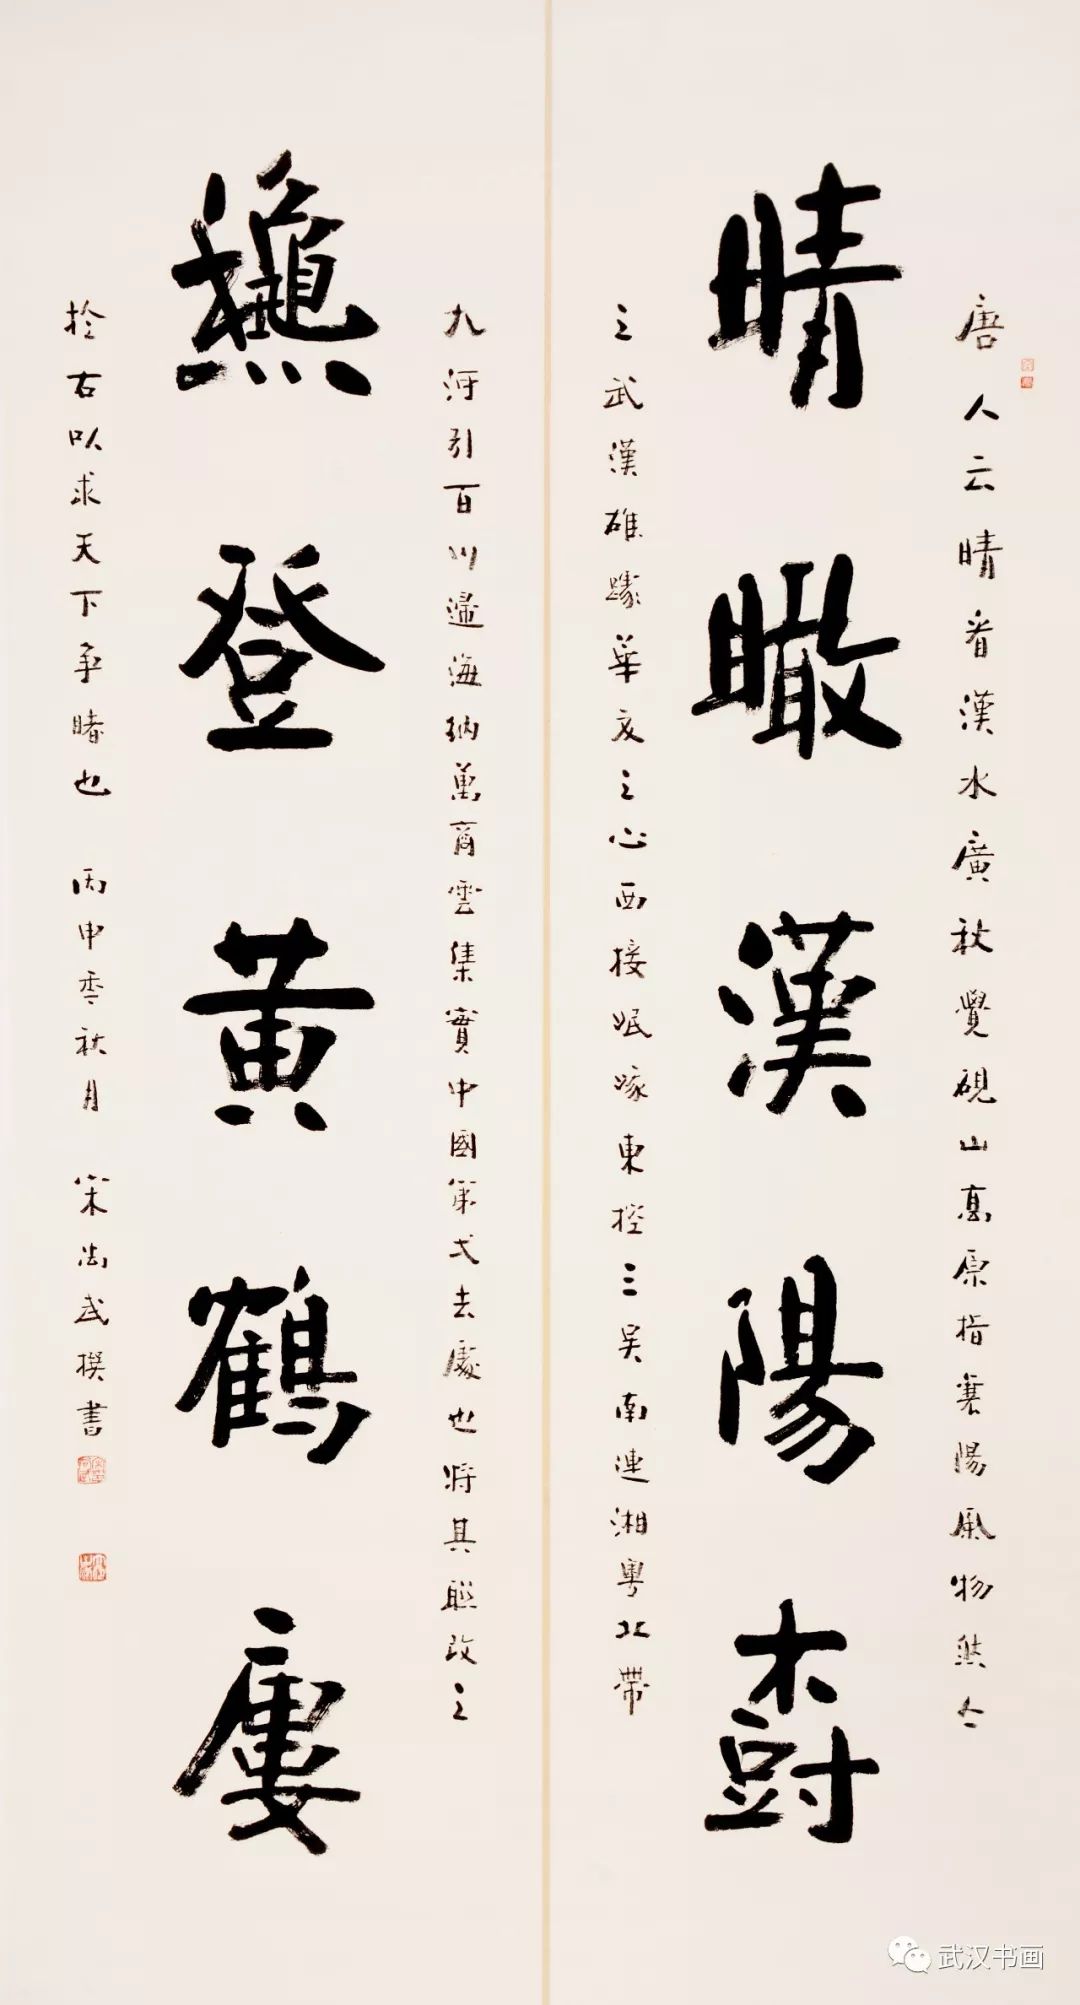 唐人云晴看漢水廣秋覺硯山高原指襄陽風物然今
晴瞰漢陽尌
之武漢雄華夏之心西接岷東控三吳南連湘粵北帶
九河引百川歸海納萬商雲集實中國第弌去處也將其聯改之
龝登黄鶴廔
於右以求天下爭睹也 丙申季秋月 宋武撰書
武汉书画